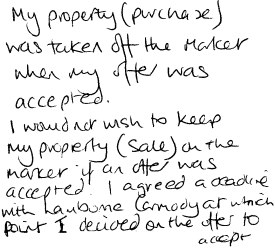 My property (purchase)
was taken off the Market
when my offer was
accepted.
I would not wish to keep
my property (sale) on the
market if an offer was
accepted. I agreed a deadline
with Lambourne Carmody at which
point I decided on the offer to
accept